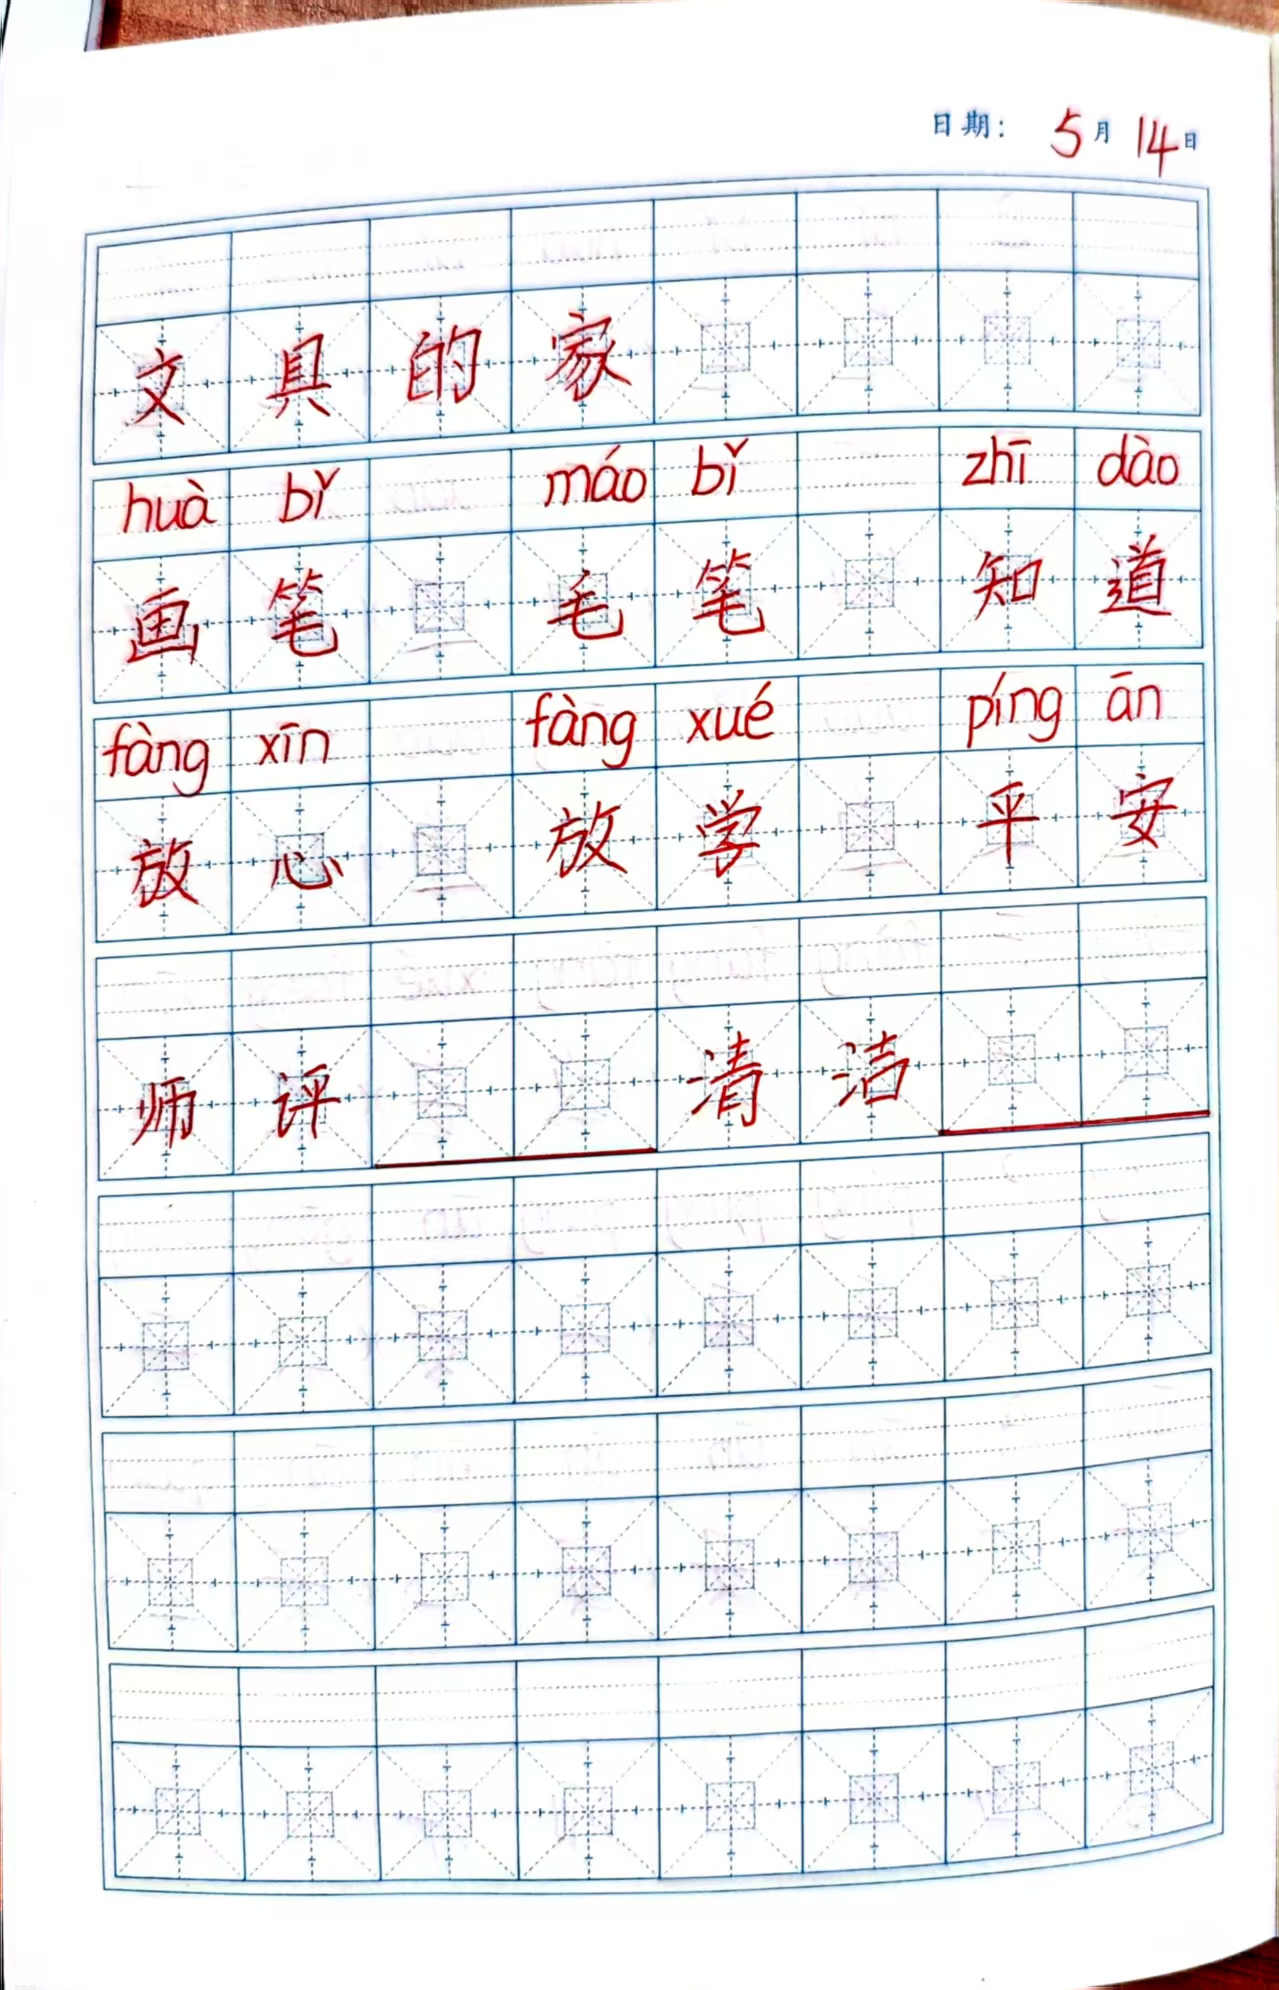 日期： 5月14日
文具的家
huà bǐ máo bǐ zhī dào
画笔 毛笔 知道
fàng xīn fàng xué píng ān
放心 放学 平安
师评 清洁